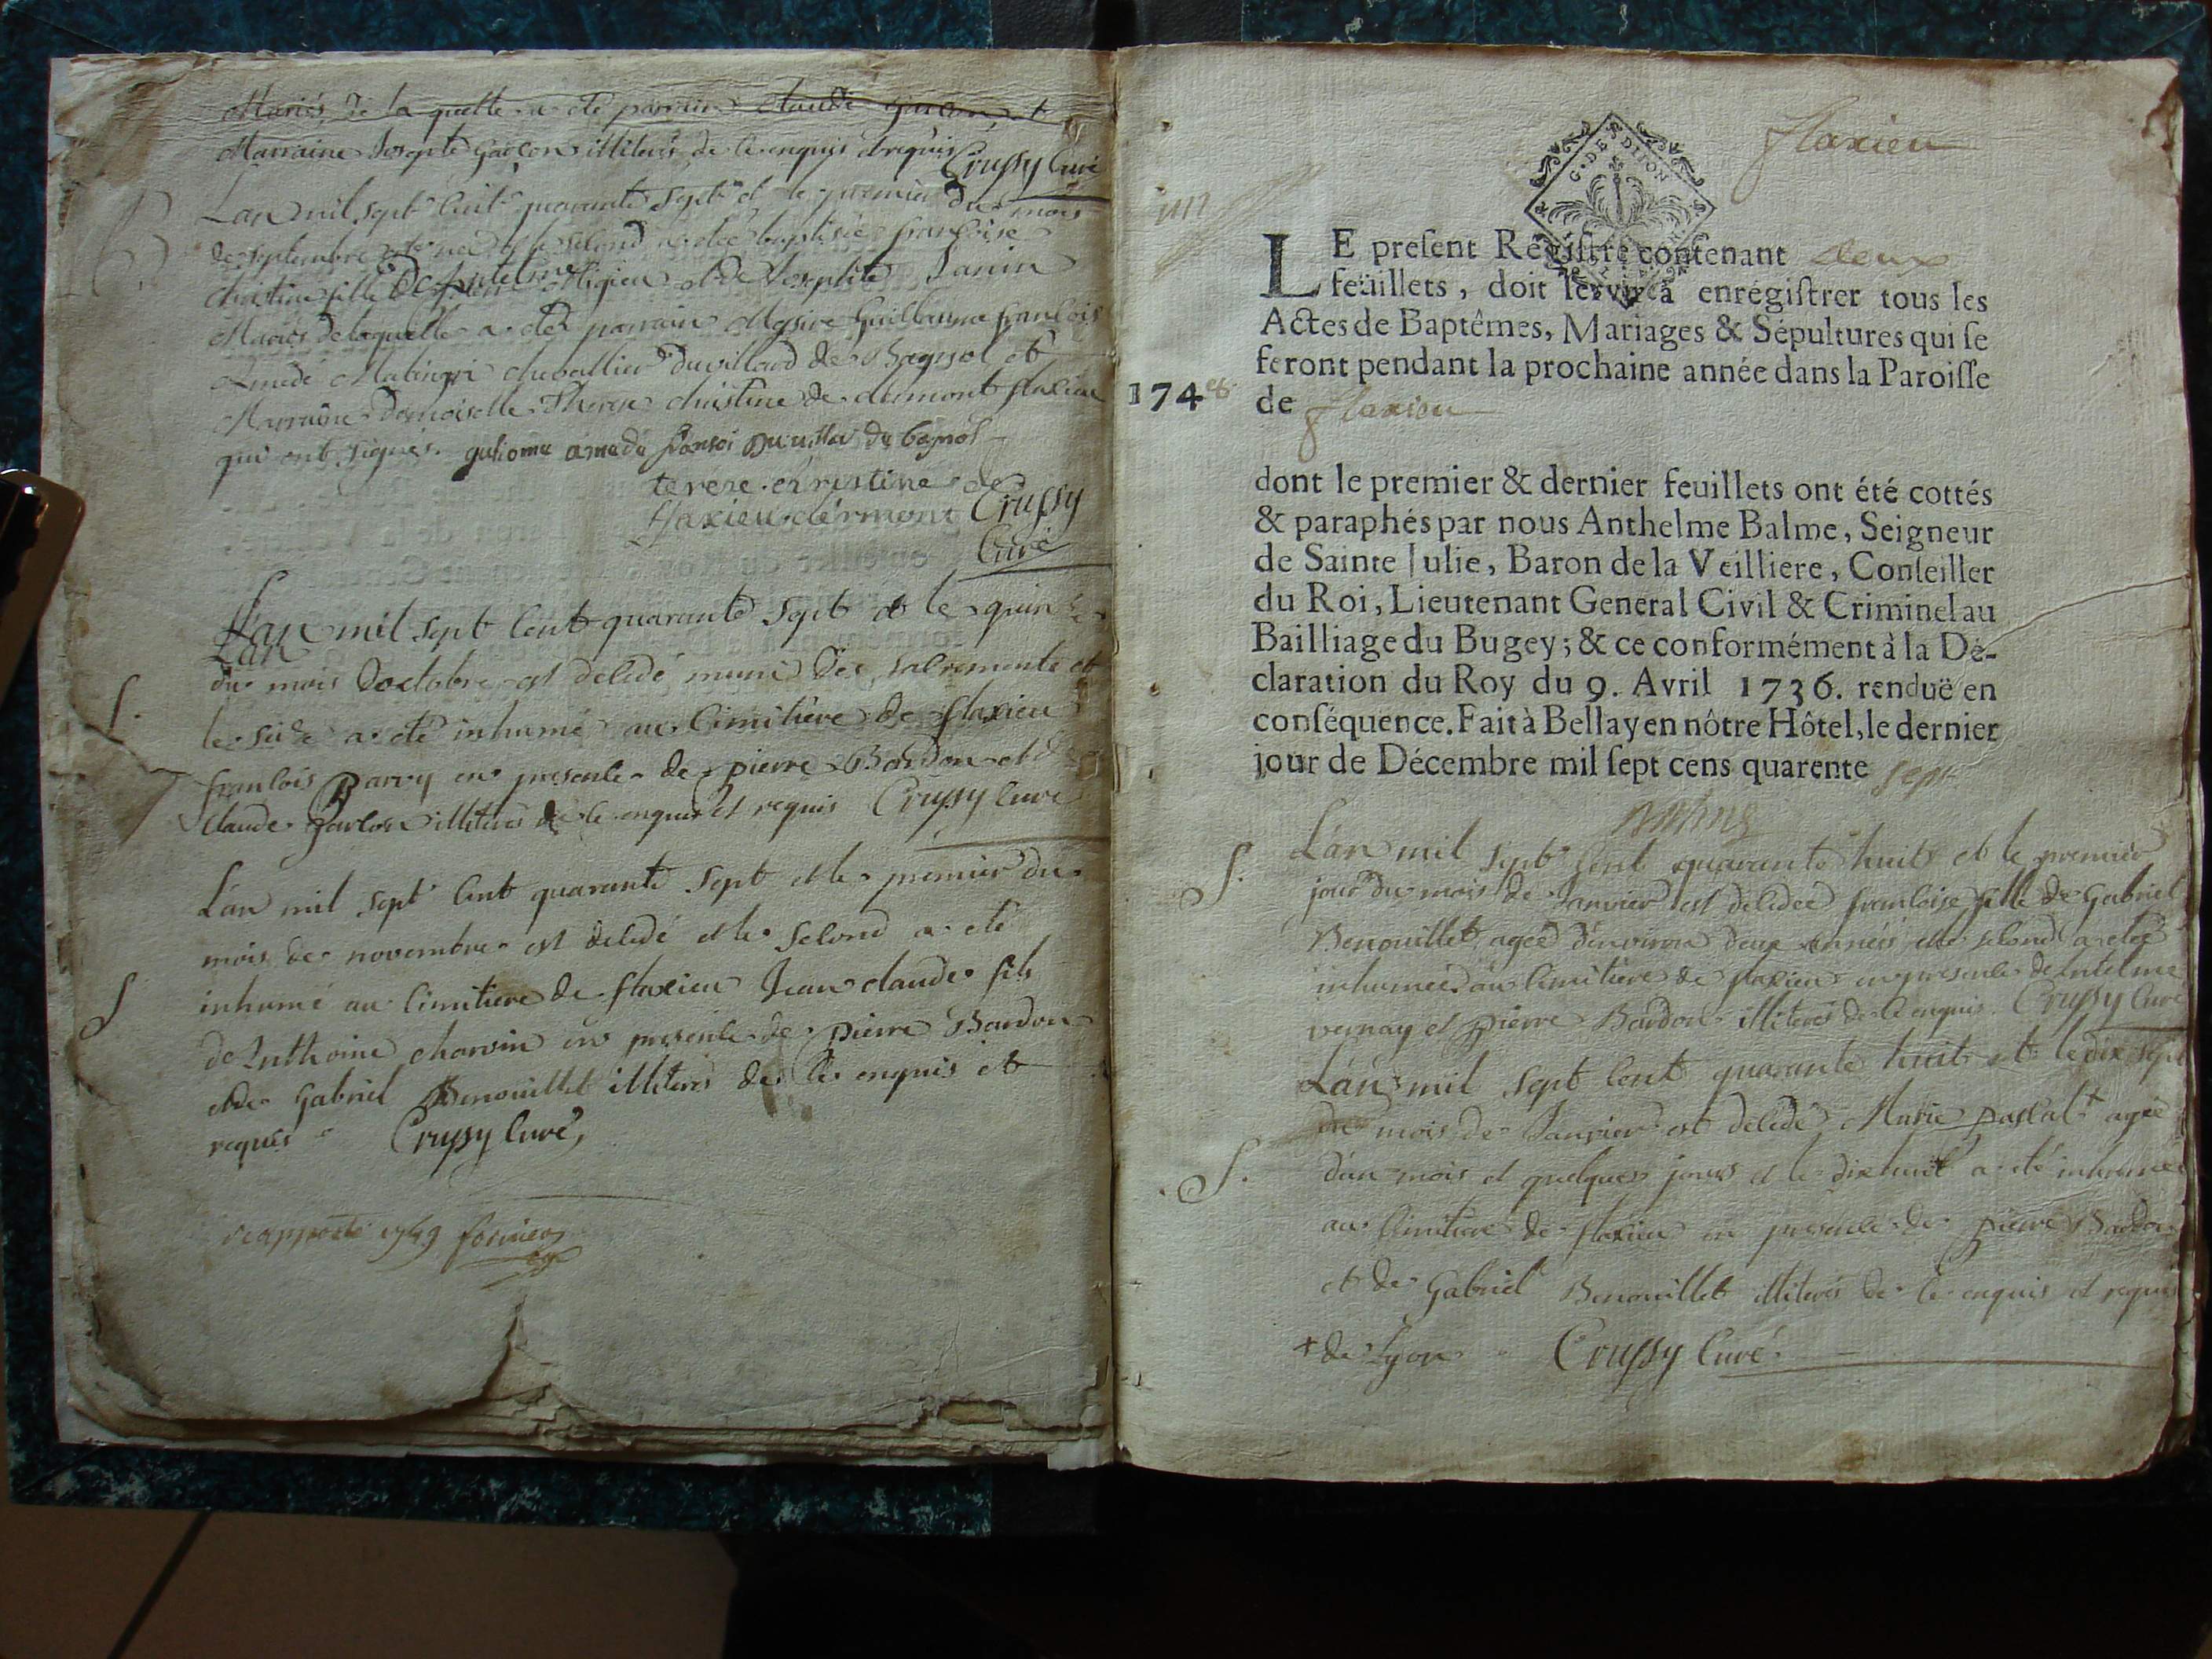 Mariés de la quelle a été parrain claude garcon et
Marraine Josepte Garçon illiterés de ce enquis et requis Crussy Curé
L'an mil sept cent quarante sept et le premier du mois
de septembre est née et le second a été baptisée françoise
christine fille de Antelme Migieu et de Josephte Janin
Mariés de laquelle a été parrain Messire Guillaume françois
Amedé chevallier duvillard de Bagnol et
Marraine Demoiselle Therese christine de clermont flaxieu
qui ont signés. guliome amede fransoi du villar de bagnol
terese christine de
flaxieu clermont Crussy
Curé
L'an mil sept cent quarante sept et le quin
L'an
du mois doctobre est décédé muni des sacrements et
le seize a été inhumé au cimitière de flaxieu
S.
françois Parvy en presence de pierre Bardon et de
claude garcon illiterés de ce enquis et requis Crussy Curé
L'an mil sept cent quarante sept et le premier du
mois de novembre est décédé et le second a été
inhumé au cimitiere de flaxieu Jean claude fils
S
de Anthoine charvin en presence de pierre Bardon
et de Gabriel Benouillet illiterés de ce enquis et
requis Crussy Curé,
raapporté 1749
flaxieu
G. DE DIJON
1117
LE present Régistre contenant deux
feüillets, doit servir à enrégistrer tous les
Actes de Baptêmes, Mariages & Sépultures qui se
feront pendant la prochaine année dans la Paroisse
1748 de flaxieu
dont le premier & dernier feuillets ont été cottés
& paraphés par nous Anthelme Balme, Seigneur
de Sainte Julie, Baron de la Veilliere, Conseiller
du Roi, Lieutenant General Civil & Criminel au
Bailliage du Bugey; & ce conformément à la Dé-
claration du Roy du 9. Avril 1736. renduë en
conséquence. Fait à Bellay en nôtre Hôtel, le dernier
jour de Décembre mil sept cens quarente sept
Balme
L'an mil sept cent quarante huit et le premier
S.
jour du mois de Janvier est décédée françoise fille de Gabriel
Benouillet agée d'environ deux années et le second a été
inhumée au cimitière de flaxieu en presence de Antelme
vernay et pierre Bardon illiterés de ce enquis. Crussy Curé
L'an mil sept cent quarante huit et le dix sept
du mois de Janvier est décédé Marie pascal + agée
S.
d'un mois et quelques jours et le dixhuit a été inhumée
au cimitiere de flaxieu en presence de pierre Bardon
et de Gabriel Benouillet illiterés de ce enquis et requis
+ de Lyon Crussy Curé.